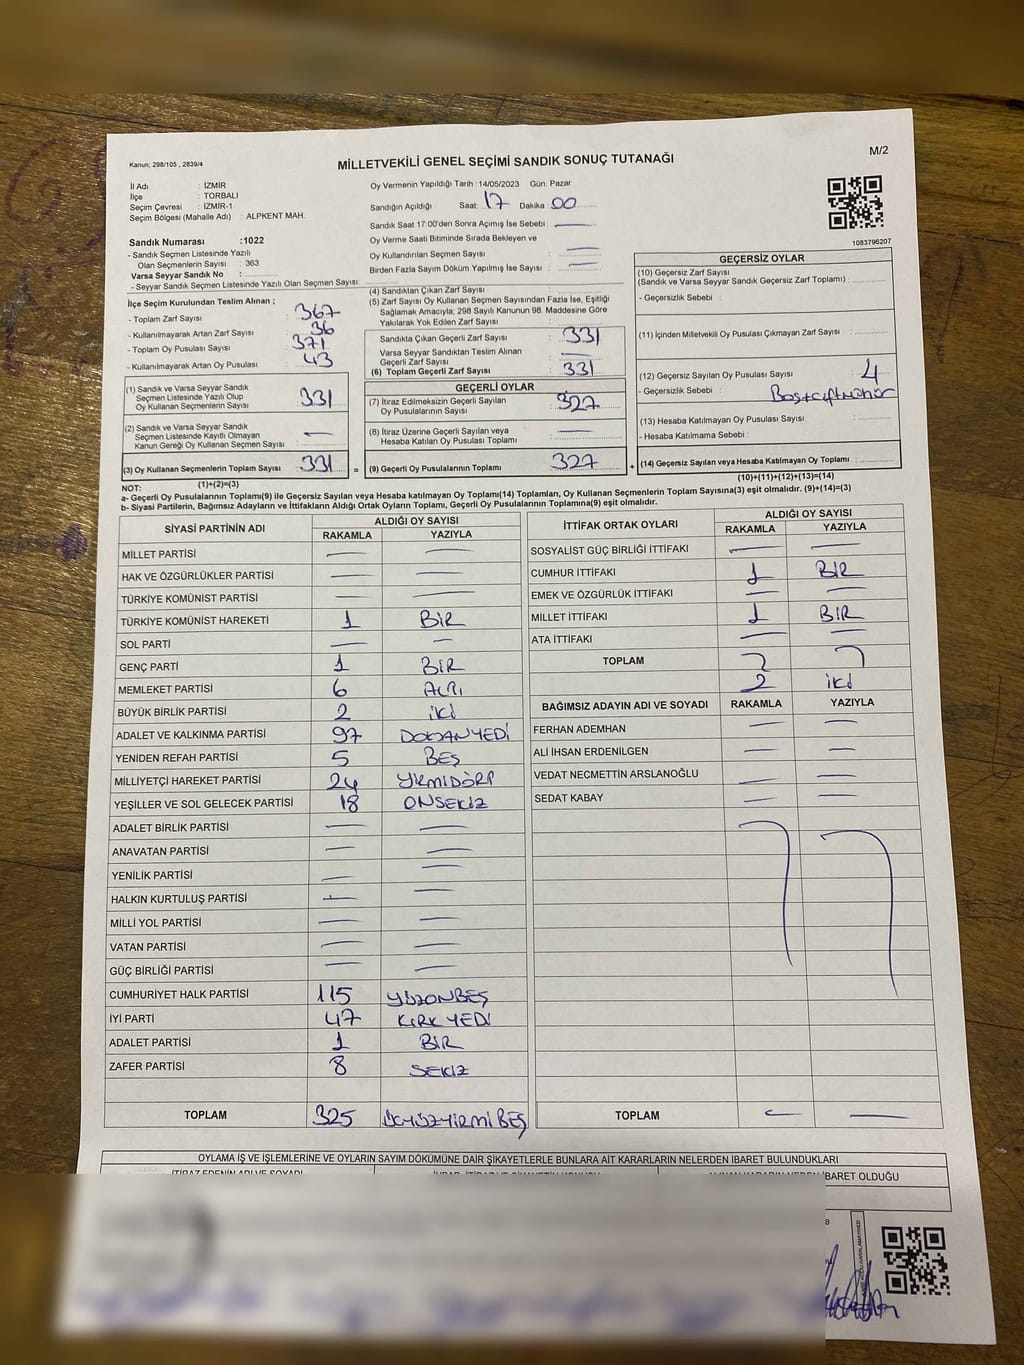 Kanun; 298/105 , 2839/4
MİLLETVEKİLİ GENEL SEÇİMİ SANDIK SONUÇ TUTANAĞI
M/2
İl Adı : İZMİR
İlçe : TORBALI
Seçim Çevresi : İZMİR-1
Seçim Bölgesi (Mahalle Adı) : ALPKENT MAH.
Sandık Numarası :1022
- Sandık Seçmen Listesinde Yazılı
Olan Seçmenlerin Sayısı : 363
Varsa Seyyar Sandık No :
- Seyyar Seçmen Listesinde Yazılı Olan Seçmen Sayısı:
İlçe Seçim Kurulundan Teslim Alınan ;
- Toplam Zarf Sayısı : 367
- Kullanılmayarak Artan Zarf Sayısı : 36
- Toplam Oy Pusulası Sayısı : 371
- Kullanılmayarak Artan Oy Pusulası : 43
(1) Sandık ve Varsa Seyyar Sandık
Seçmen Listesinde Yazılı Olup
Oy Kullanan Seçmenlerin Sayısı : 331
(2) Sandık ve Varsa Seyyar Sandık
Seçmen Listesinde Kayıtlı Olmayan
Kanun Gereği Oy Kullanan Seçmen Sayısı : —
(3) Oy Kullanan Seçmenlerin Toplam Sayısı : 331
(1)+(2)=(3)
Oy Vermenin Yapıldığı Tarih :14/05/2023 Gün: Pazar
Sandığın Açıldığı Saat: 17 Dakika: 00
Sandık Saat 17:00'den Sonra Açımış İse Sebebi : —
Oy Verme Saati Bitiminde Sırada Bekleyen ve
Oy Kullandırılan Seçmen Sayısı : —
Birden Fazla Sayım Döküm Yapılmış İse Sayısı : —
(4) Sandıktan Çıkan Zarf Sayısı :
(5) Zarf Sayısı Oy Kullanan Seçmen Sayısından Fazla İse, Eşitliği
Sağlamak Amacıyla; 298 Sayılı Kanunun 98. Maddesine Göre
Yakılarak Yok Edilen Zarf Sayısı :
Sandıkta Çıkan Geçerli Zarf Sayısı : 331
Varsa Seyyar Sandıktan Teslim Alınan
Geçerli Zarf Sayısı : —
(6) Toplam Geçerli Zarf Sayısı : 331
GEÇERLİ OYLAR
(7) İtiraz Edilmeksizin Geçerli Sayılan
Oy Pusulalarının Sayısı : 327
(8) İtiraz Üzerine Geçerli Sayılan veya
Hesaba Katılan Oy Pusulası Toplamı : —
= (9) Geçerli Oy Pusulalarının Toplamı : 327
1083796207
GEÇERSİZ OYLAR
(10) Geçersiz Zarf Sayısı
(Sandık ve Varsa Seyyar Sandık Geçersiz Zarf Toplamı) :
- Geçersizlik Sebebi :
(11) İçinden Milletvekili Oy Pusulası Çıkmayan Zarf Sayısı :
(12) Geçersiz Sayılan Oy Pusulası Sayısı : 4
- Geçersizlik Sebebi : Boş+çift mühür
(13) Hesaba Katılmayan Oy Pusulası Sayısı :
- Hesaba Katılmama Sebebi :
+ (14) Geçersiz Sayılan veya Hesaba Katılmayan Oy Toplamı :
(10)+(11)+(12)+(13)=(14)
NOT:
a- Geçerli Oy Pusulalarının Toplamı(9) ile Geçersiz Sayılan veya Hesaba katılmayan Oy Toplamı(14) Toplamları, Oy Kullanan Seçmenlerin Toplam Sayısına(3) eşit olmalıdır. (9)+(14)=(3)
b- Siyasi Partilerin, Bağımsız Adayların ve İttifakların Aldığı Ortak Oyların Toplamı, Geçerli Oy Pusulalarının Toplamına(9) eşit olmalıdır.
SİYASİ PARTİNİN ADI ALDIĞI OY SAYISI
RAKAMLA YAZIYLA
MİLLET PARTİSİ — —
HAK VE ÖZGÜRLÜKLER PARTİSİ — —
TÜRKİYE KOMÜNİST PARTİSİ — —
TÜRKİYE KOMÜNİST HAREKETİ 1 BİR
SOL PARTİ — —
GENÇ PARTİ 1 BİR
MEMLEKET PARTİSİ 6 ALTI
BÜYÜK BİRLİK PARTİSİ 2 iki
ADALET VE KALKINMA PARTİSİ 97 DOKSANYEDİ
YENİDEN REFAH PARTİSİ 5 BEŞ
MİLLİYETÇİ HAREKET PARTİSİ 24 YİRMİDÖRT
YEŞİLLER VE SOL GELECEK PARTİSİ 18 ONSEKİZ
ADALET BİRLİK PARTİSİ — —
ANAVATAN PARTİSİ — —
YENİLİK PARTİSİ — —
HALKIN KURTULUŞ PARTİSİ — —
MİLLİ YOL PARTİSİ — —
VATAN PARTİSİ — —
GÜÇ BİRLİĞİ PARTİSİ — —
CUMHURİYET HALK PARTİSİ 115 YÜZONBEŞ
İYİ PARTİ 47 KIRK YEDİ
ADALET PARTİSİ 1 BİR
ZAFER PARTİSİ 8 SEKİZ
TOPLAM 325 ÜÇYÜZYİRMİ BEŞ
İTTİFAK ORTAK OYLARI ALDIĞI OY SAYISI
RAKAMLA YAZIYLA
SOSYALİST GÜÇ BİRLİĞİ İTTİFAKI — —
CUMHUR İTTİFAKI 1 BİR
EMEK VE ÖZGÜRLÜK İTTİFAKI — —
MİLLET İTTİFAKI 1 BİR
ATA İTTİFAKI — —
TOPLAM
2 iki
BAĞIMSIZ ADAYIN ADI VE SOYADI RAKAMLA YAZIYLA
FERHAN ADEMHAN — —
ALİ İHSAN ERDENİLGEN — —
VEDAT NECMETTİN ARSLANOĞLU — —
SEDAT KABAY — —
TOPLAM — —
OYLAMA İŞ VE İŞLEMLERİNE VE OYLARIN SAYIM DÖKÜMÜNE DAİR ŞİKAYETLERLE BUNLARA AİT KARARLARIN NELERDEN İBARET BULUNDUKLARI
İTİRAZ EDENİN ADI VE SOYADI
İBARET OLDUĞU